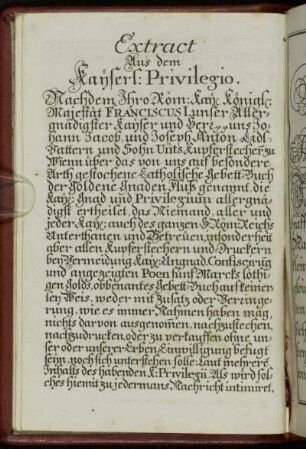 Extract
Aus dem
Kaÿserl: Privilegio.
Nachdem Ihro Röm: Kaÿ: Königl:
Majestät FRANCISCUS I unser Aller-
gnädigster Kaÿser und Herr uns Jo-
hann Jacob, und Joseph Anton Lidl
Vattern und Sohn Univ: Kupferstecher zu
Wienn über das von uns auf besondere
Arth gestochene Catholische Gebett-Buch
der Goldene Gnaden Fluß genannt die
Kaÿ: Gnad und Privilegium allergnä-
digst ertheilet, das Niemand, aller und
jeder Kaÿ: auch des ganzen H: Röm: Reichs
Unterthanen und Getreüen, insonderheit
aber allen Kupferstechern und Druckern
beÿ Vermeidung Kaÿ: Ungnad, Confiscirug
und angezeigten Poen fünf Marcks löthi-
gen Golds, obbenantes Gebett-Buch auf keiner-
leÿ Weis, weder mit Zusatz oder Verringe-
rung, wie es immer Nahmen haben mag,
nichts darvon ausgenomen, nachzustechen,
nachzudrucken, oder zu verkauffen ohne un-
ser oder unserer Erben Einwilligung befugt
seÿn, noch sich unterstehen solle: Laut mehrern
Inhalts des habenden K: Privilegii. Als wird sol-
ches hiemit zu jedermans Nachricht intimiret.